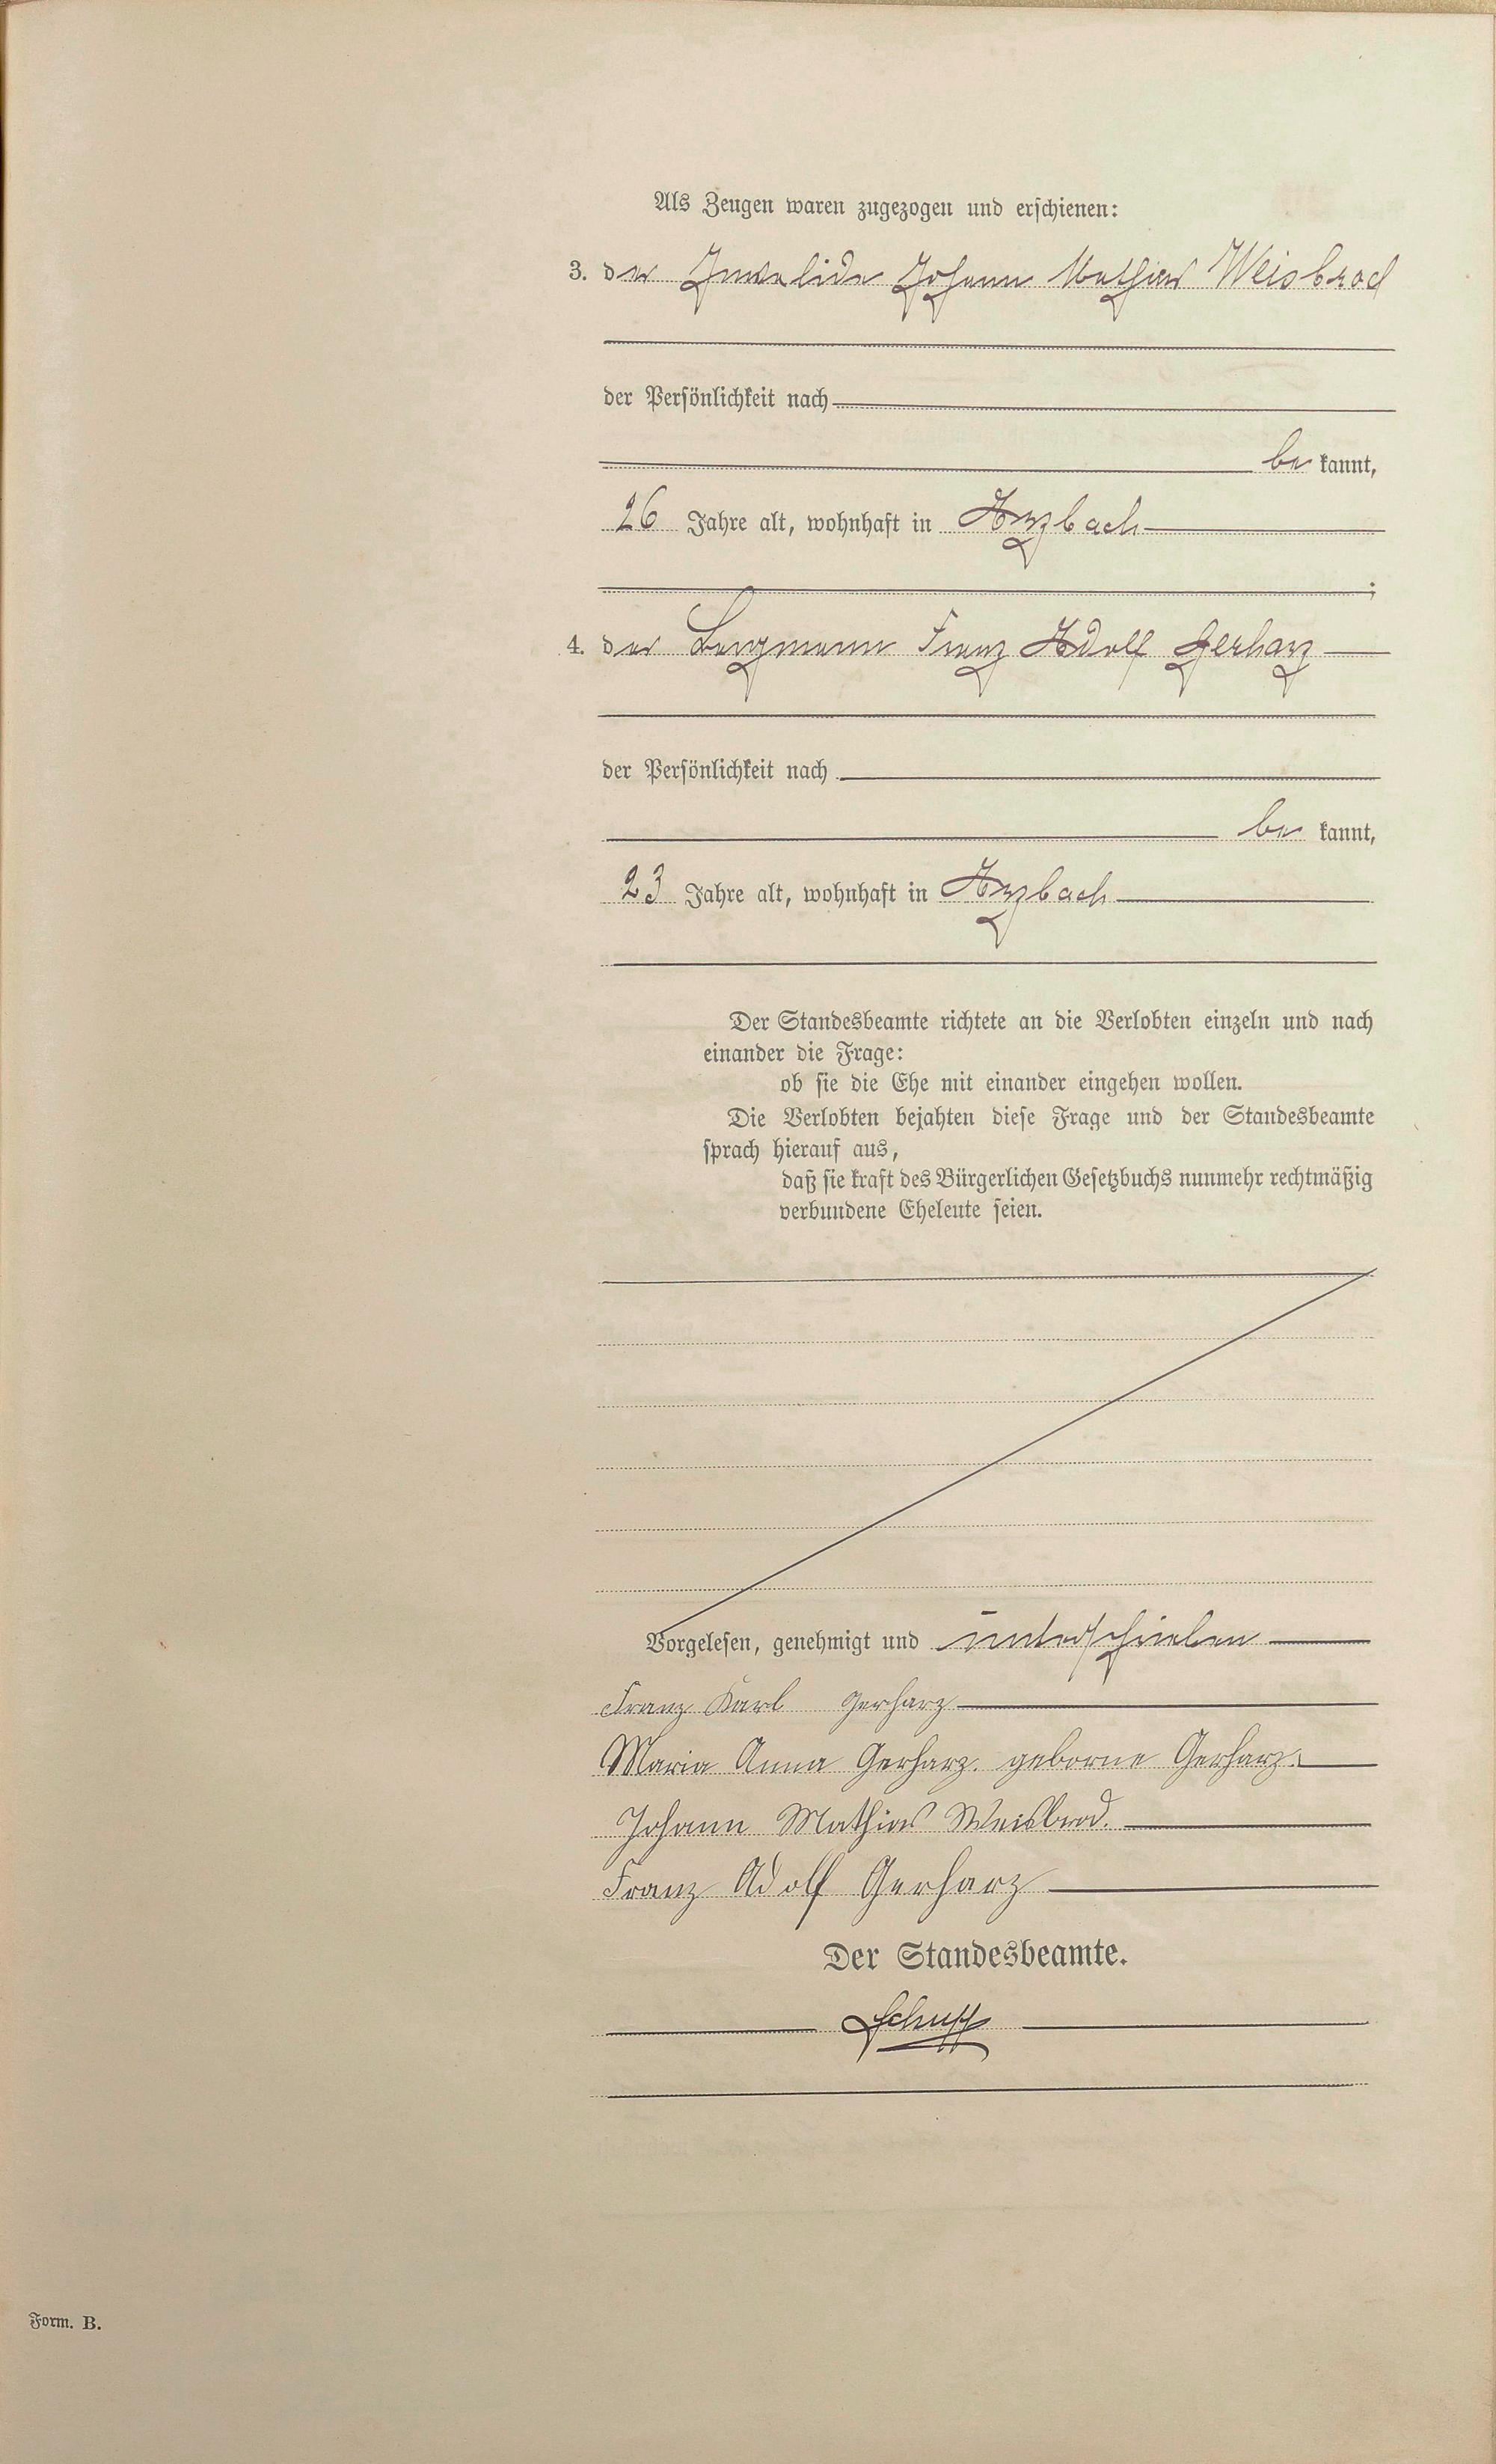 Als Zeugen waren zugezogen und erschienen:
3. der Invalide Johann Mathias Weisbrod
der Persönlichkeit nach
be kannt,
26 Jahre alt, wohnhaft in Arzbach
;
4. der Bergmann Franz Adolf Gerharz
der Persönlichkeit nach
be kannt,
23 Jahre alt, wohnhaft in Arzbach
Der Standesbeamte richtete an die Verlobten einzeln und nach
einander die Frage:
ob sie die Ehe mit einander eingehen wollen.
Die Verlobten bejahten diese Frage und der Standesbeamte
sprach hierauf aus,
daß sie kraft des Bürgerlichen Gesetzbuchs nunmehr rechtmäßig
verbundene Eheleute seien.
Vorgelesen, genehmigt und unterschrieben
Franz Karl Gerharz
Maria Anna Gerharz. geborne Gerharz.
Johann Mathias Weisbrod.
Franz Adolf Gerharz
Der Standesbeamte.
Form. B.